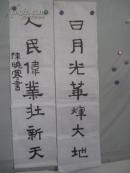 日月光華輝大地
人民偉業壯新天
陳曉寒書